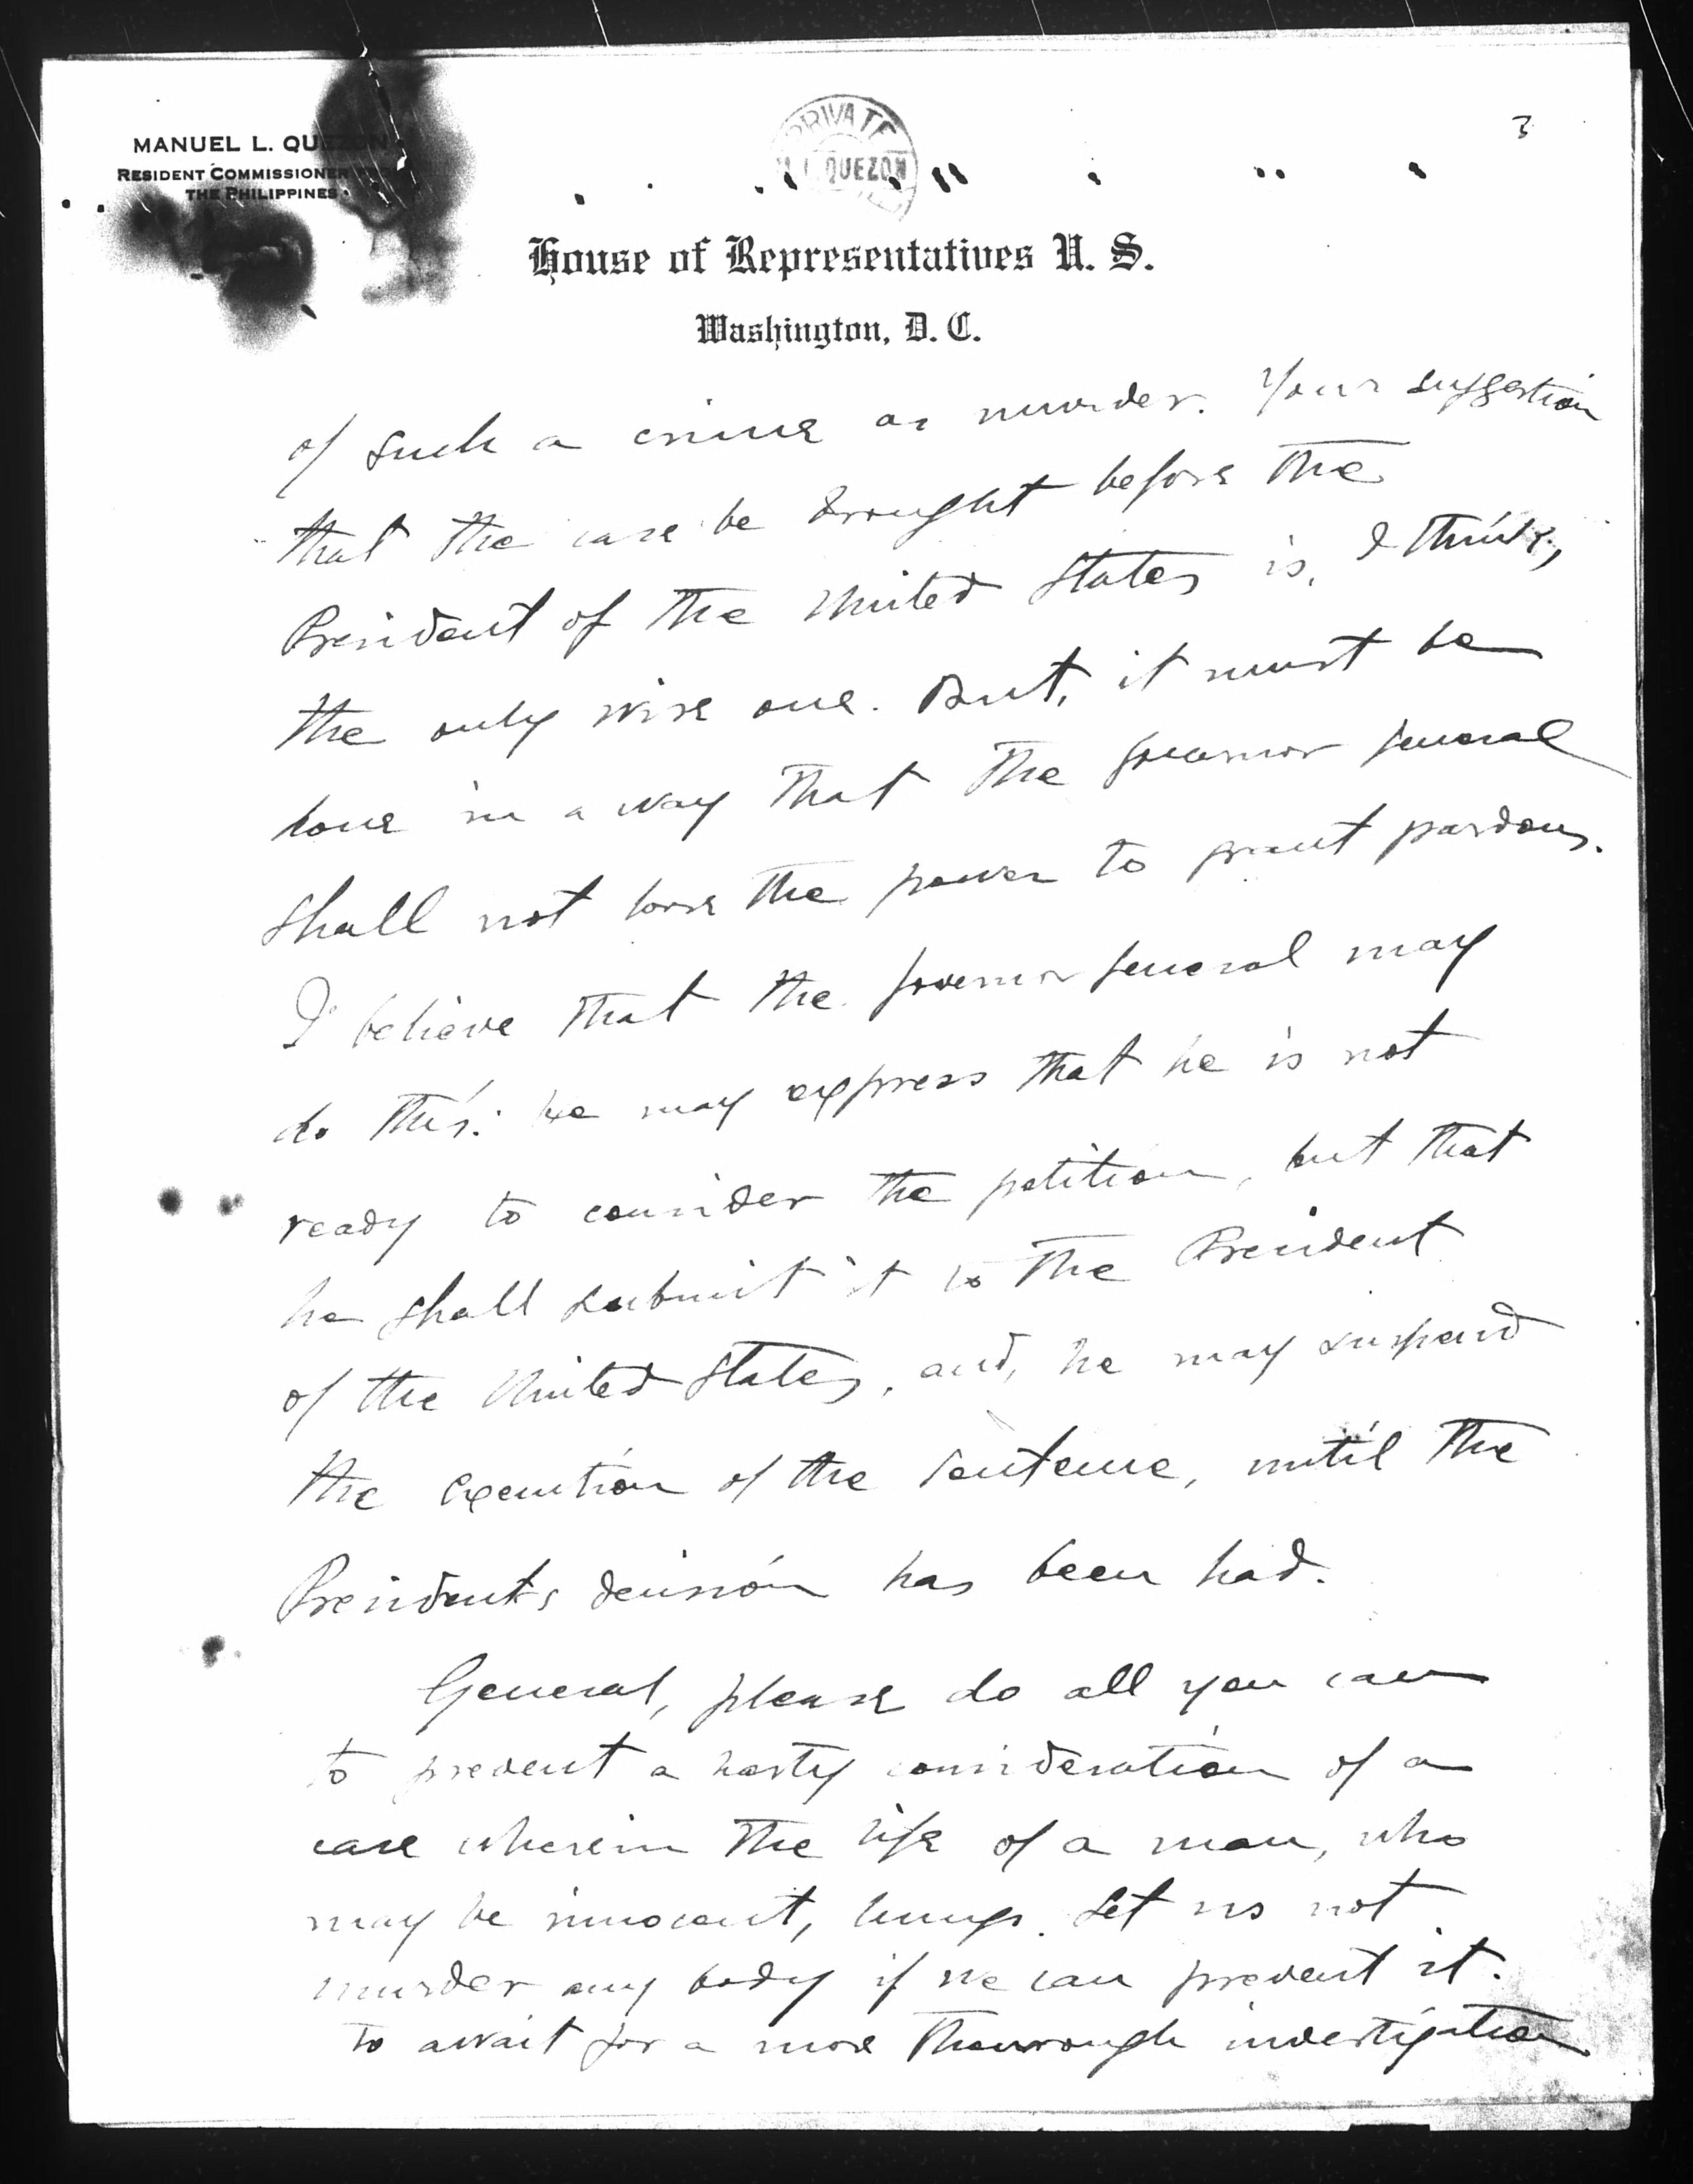 3
MANUEL L. QUEZON
RESIDENT COMMISSIONER
THE PHILIPPINES
PRIVATE
QUEZON
House of Representatives U. S.
Washington, D. C.
of such a crime as murder. Your suggestion
that the case be brought before the
President of the United States is, I think,
the only wise one. But, it must be
done in a way that the governor general
shall not loose the power to grant pardons.
I believe that the governor general may
do this: he may express that he is not
ready to consider the petition, but that
he shall submit it to the President
of the United States, and, he may suspend
the execution of the sentence, until the
Presidents decisión has been had.
General, please do all you can
to prevent a hasty consideration of a
case wherein the life of a man, who
may be innocent, hungs. Let us not
murder any body if we can prevent it.
To await for a more thourough investigation